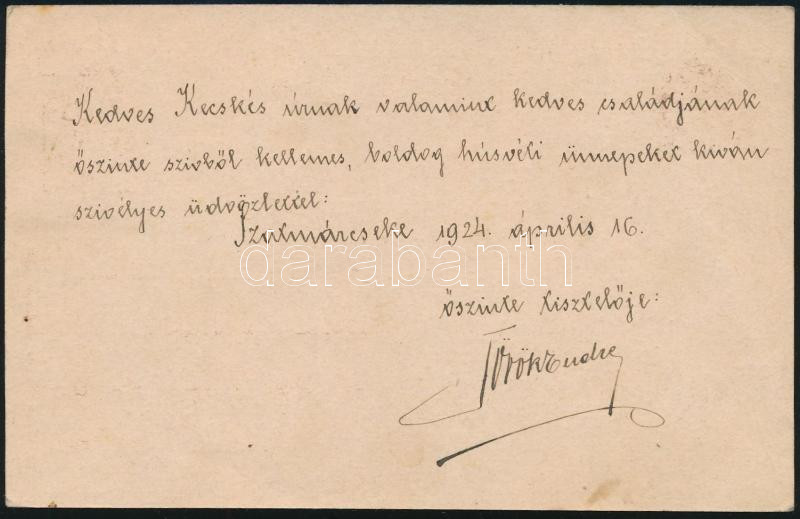 Kedves Kecskés úrnak valamint kedves családjának
őszinte szivből kellemes, boldog húsvéti ünnepeket kiván
szivélyes üdvözlettel:
Szatmárcseke 1924. április 16.
darabanth
őszinte tisztelője:
Török Endre